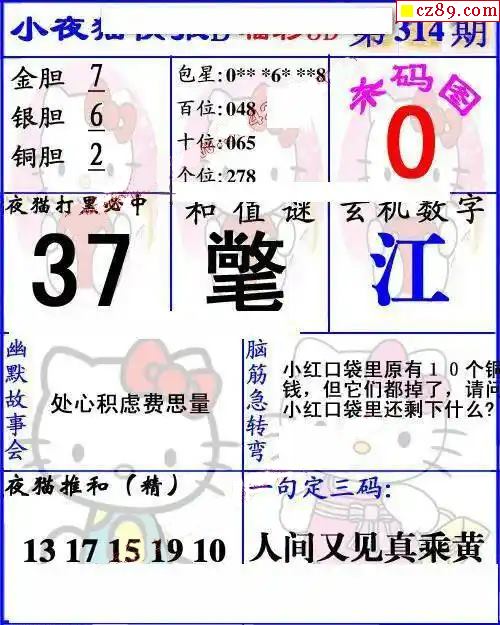 cz89.com
小夜猫
第314期
金胆 7
银胆 6
铜胆 2
包星:0** *6* **8
百位:048
十位:065
个位:278
本码图
0
夜猫打黑必中
37
和值谜
氅
玄机数字
江
幽默故事会
处心积虑费思量
脑筋急转弯
小红口袋里原有10个铜
钱，但它们都掉了，请问
小红口袋里还剩下什么?
夜猫推和（精）
13 17 15 19 10
一句定三码:
人间又见真乘黄